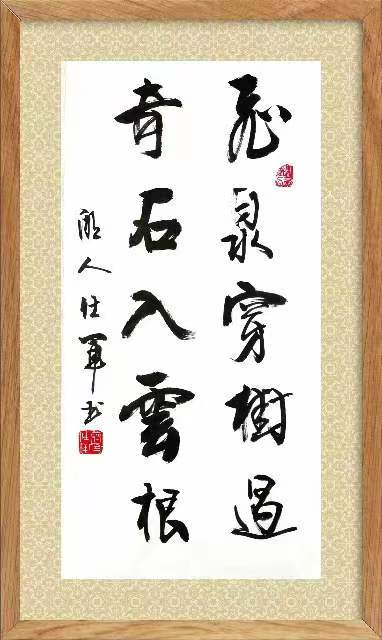 飛泉穿樹過
奇石入雲根
湘人仕軍书